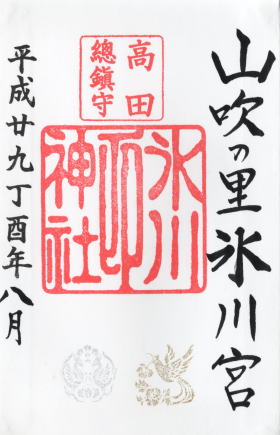 山吹の里氷川宮
高田
總鎮守
氷川
神社
平成廿九丁酉年八月